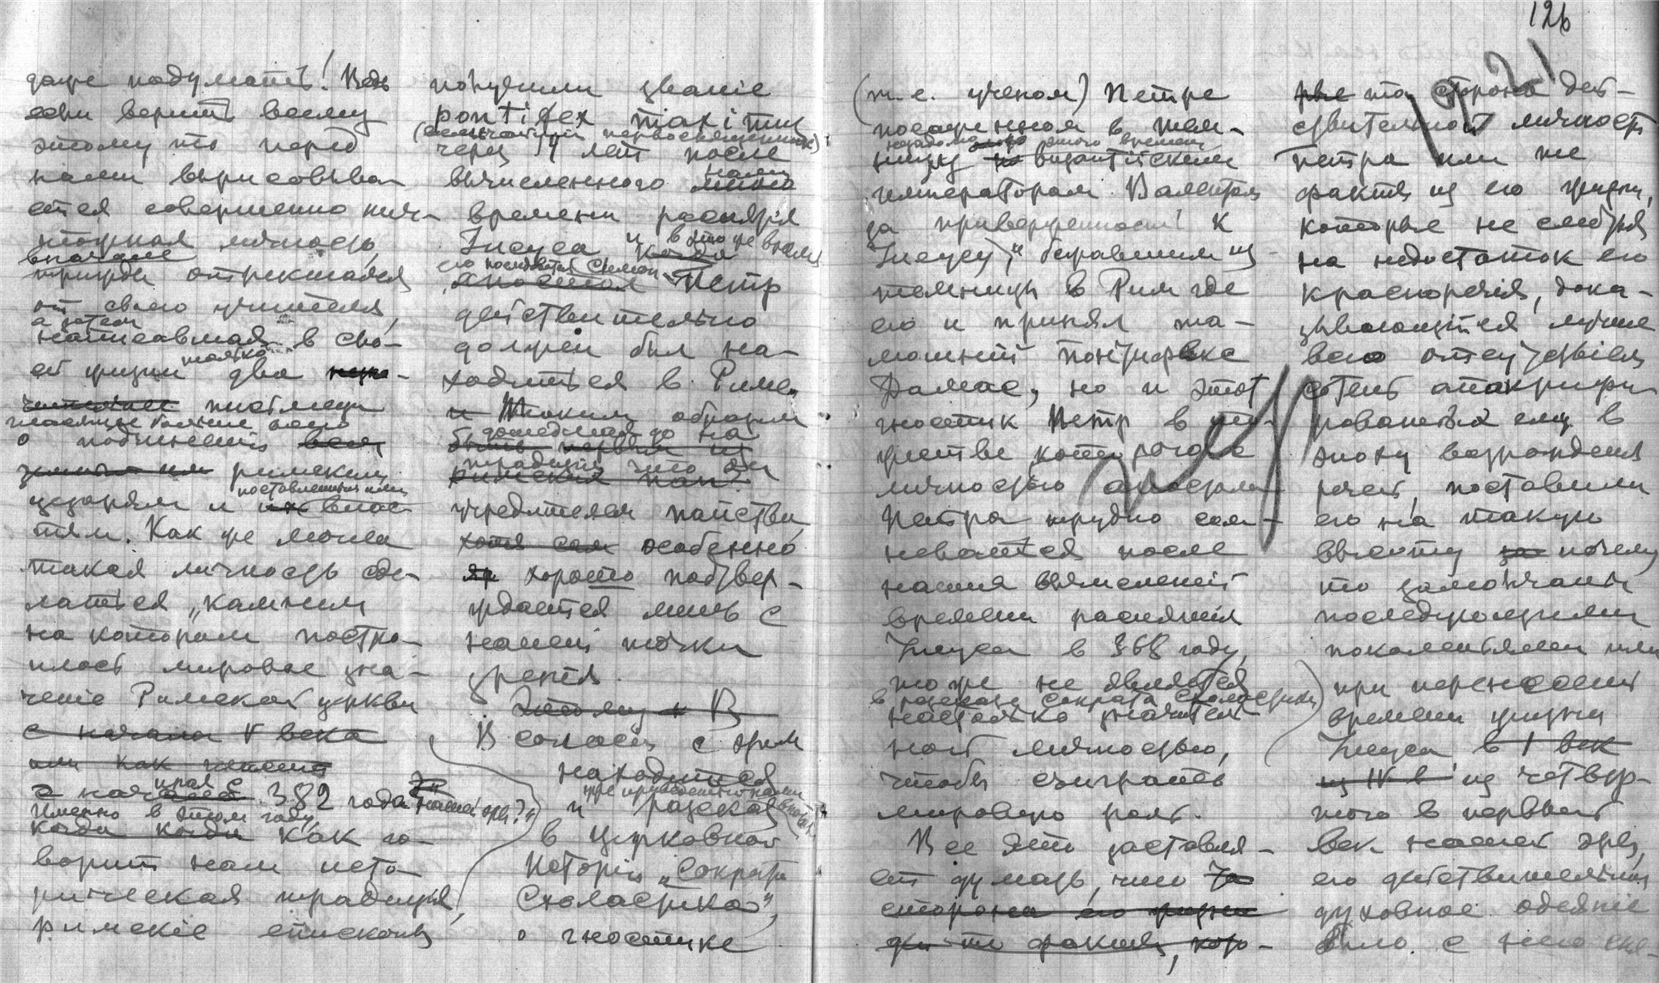 126
даже подумать! Ведь
если верить всему
этому то перед
нами вырисовыва-
ется совершенно нич-
тожная личность,
трижды отрекшаяся
от своего учителя,
а затем
написавшая в сво-
ей жизни только два
письмеца
о подчинении
римским
цезарям и поставленным ими влас-
тям. Как же могла
такая личность сде-
латься „камнем
на котором постро-
илось мировое зна-
чение Римской церкви
с начала V века
382 года нашей эры?"
Именно в этом году,
как го-
ворит нам исто-
рическая традиция,
римскіе епископы
получили званіе
pontifex maximus
(величайший первосвященник)
через 14 лет после
вычисленного нами
времени распятія
Іисуса и в это же время
его последователь Симон-Петр
действительно
должен был на-
ходиться в Риме.
Таким образом
дошедшая до нас
традиция что он
учредителем папства,
особенно
хорошо подтвер-
ждается лишь с
нашей точки
зренія.
В согласіи с этим
находится
и разсказ
в Церковной
Исторіи „Сократа
Схоластика",
о гностике
(т.е. ученом) Петре
посаженном в тем-
ницу незадолго до этого времени византійским
императором Валентом
за приверженность к
Іисусу, бежавшем из
темницы в Рим где
его и принял та-
мошній понтифекс
Дамас, но и этот
гностик Петр в то-
жестве которого с
личностью апостола
Петра трудно сом-
неваться после
наших вычислений
времени распятія
Іисуса в 368 году,
тоже не является
в разсказе Сократа Схоластика
настолько значитель-
ной личностью,
чтобы сыграть
мировую роль.
Все это заставля-
ет думать, что
сторона его жизни
то стороны дей-
ствительной личности
Петра или же
факты из его жизни,
которые не смотря
на недостаток его
красноречія, дока-
зывающійся лучше
всего отсутствіем
сотень апокрифи-
рованных ему в
эпоху возрожденія
речей, поставили
его на такую
высоту почему
то замолчаны
последующими
поколеніями или
при перенесеніи
времени жизни
Іисуса
из четвер-
того в первый
век нашей эры,
его действительное
духовное одеяніе
было с него сня-